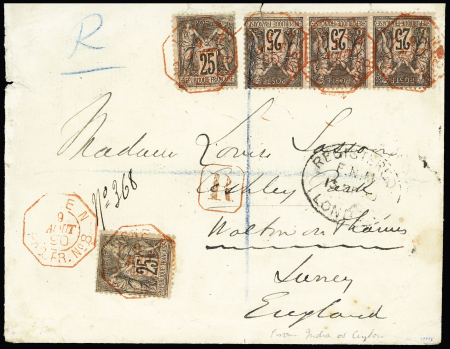 R
25
25
25
25
Madame Louis Sassoon
Ashley Park
Walton on Thames
Surrey
England
N° 368
R
REGISTERED
LONDON
L.N
9
AOUT
90
PAQ. FR. N° 8
25
From India or Ceylon